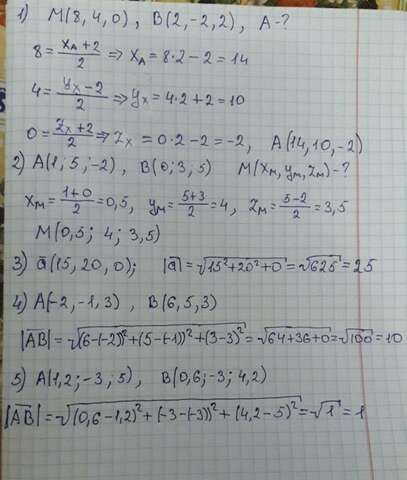 1) M(8,4,0), B(2,-2,2), A-?
8 = (x_A+2)/2 ⇒ x_A = 8·2-2 = 14
4 = (y_x-2)/2 ⇒ y_x = 4·2+2 = 10
0 = (z_x+2)/2 ⇒ z_x = 0·2-2 = -2, A(14,10,-2)
2) A(1; 5; -2), B(0; 3; 5) M(x_M, y_M, z_M)-?
x_M = (1+0)/2 = 0,5, y_M = (5+3)/2 = 4, z_M = (5-2)/2 = 3,5
M(0,5; 4; 3,5)
3) a̅(15, 20, 0); |a̅| = √(15²+20²+0) = √625 = 25
4) A(-2, -1, 3), B(6, 5, 3)
|A̅B̅| = √((6-(-2))²+(5-(-1))²+(3-3)²) = √(64+36+0) = √100 = 10
5) A(1,2; -3; 5), B(0,6; -3; 4,2)
|A̅B̅| = √((0,6-1,2)²+(-3-(-3))²+(4,2-5)²) = √1 = 1